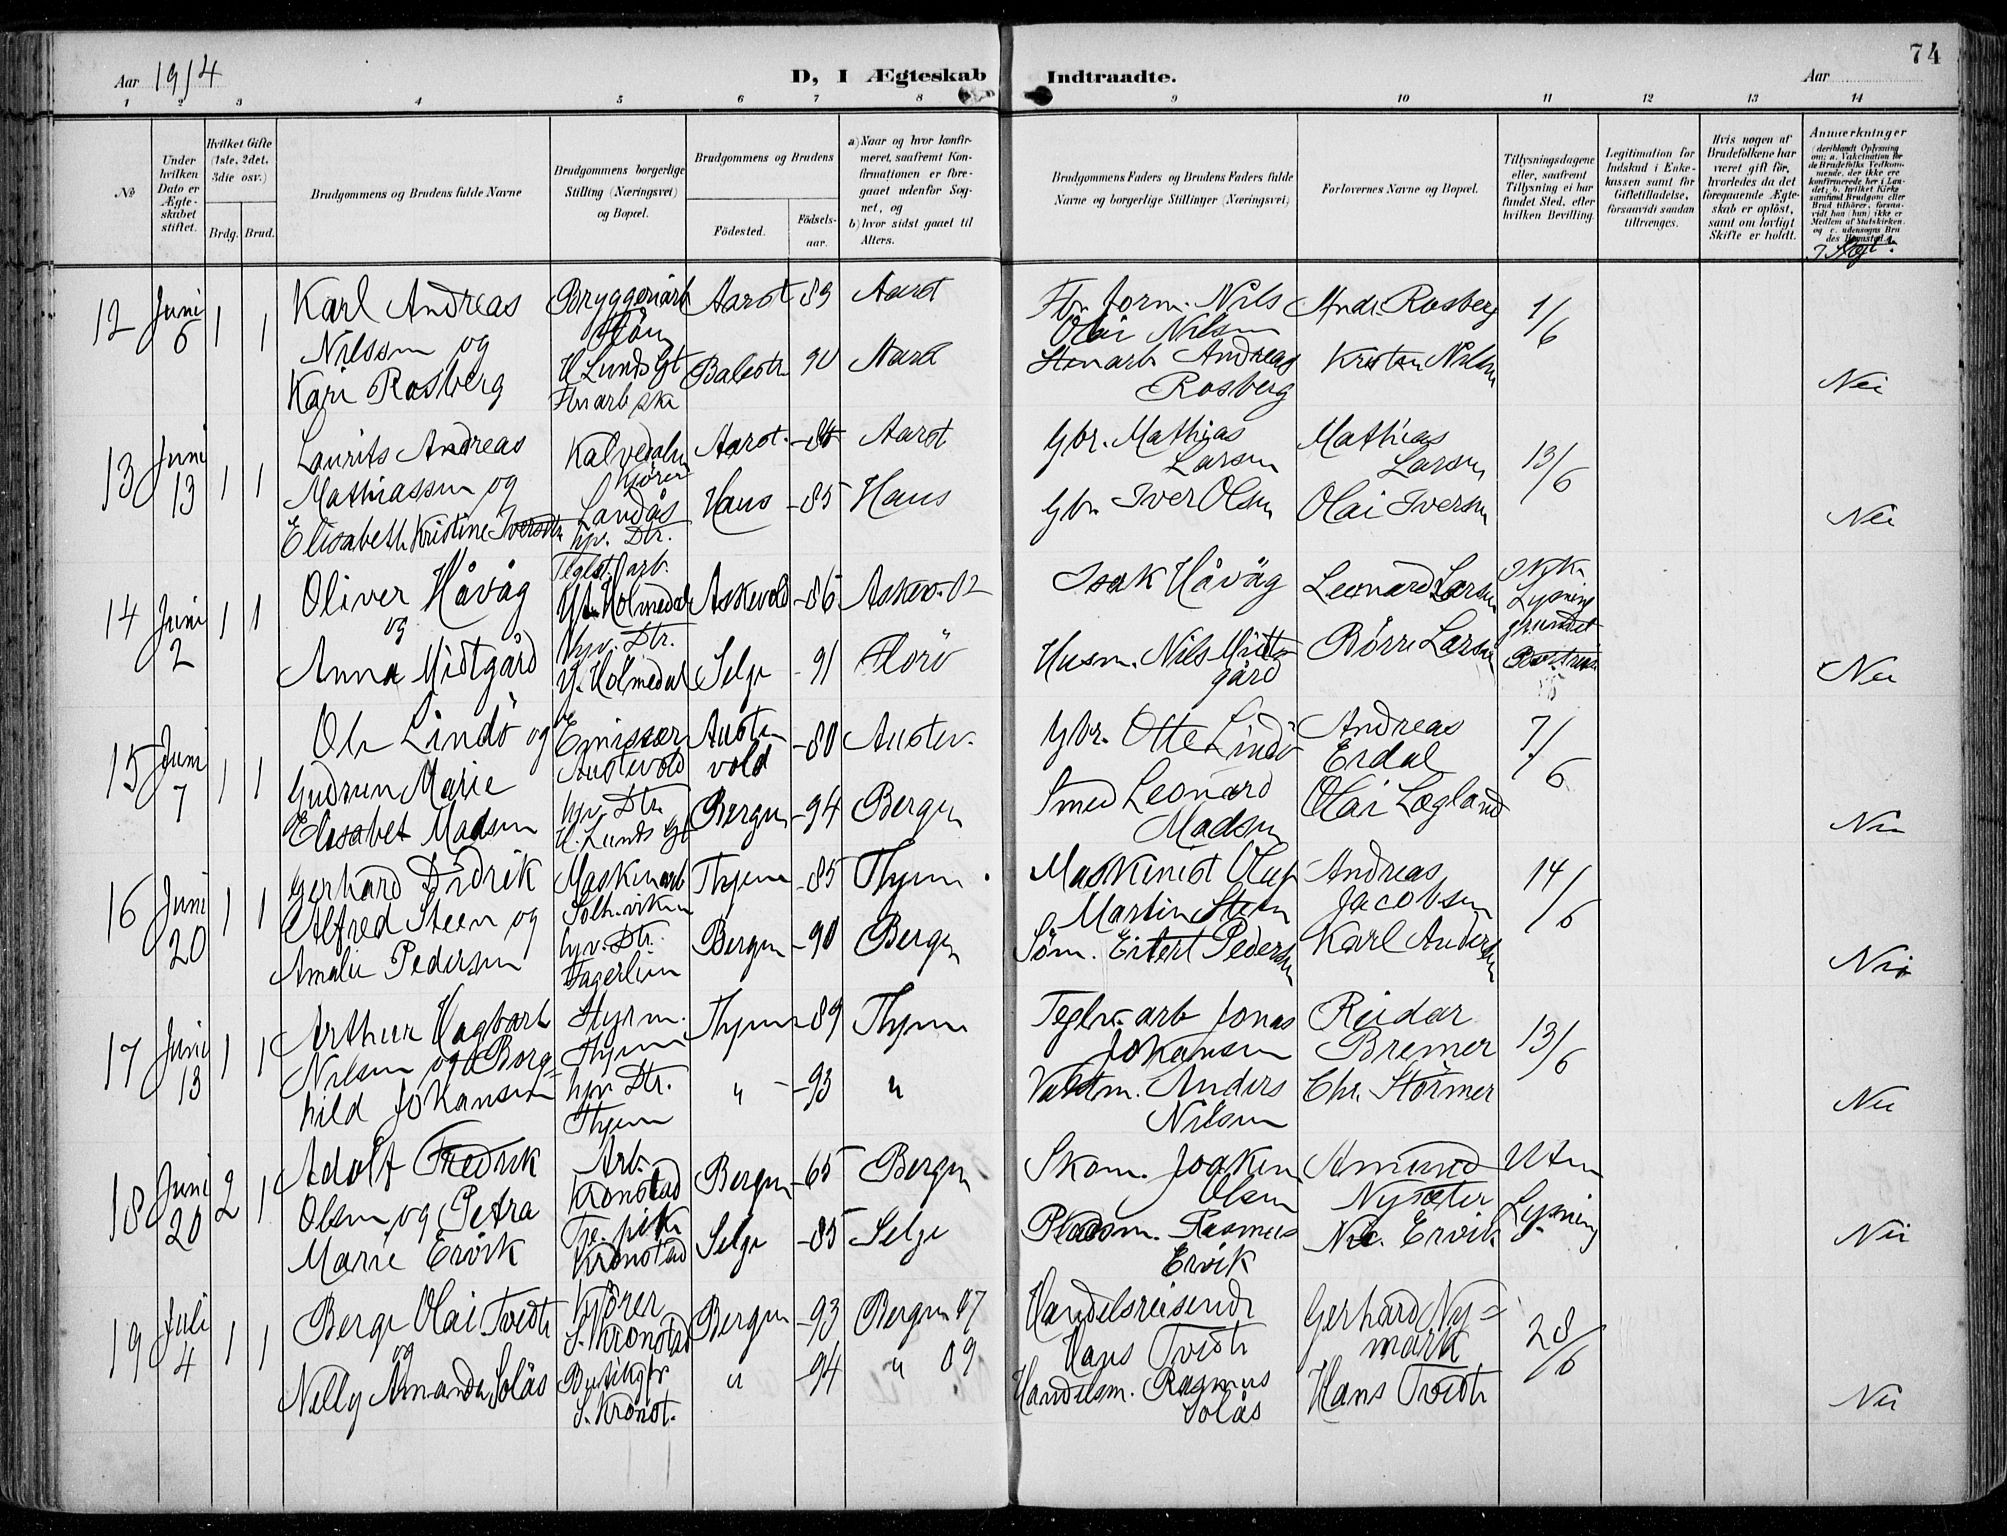 74
Aar 1914
D, I Ægteskab Indtraadte.
Aar
1 2 3 4 5 6 7 8 9 10 11 12 13 14
No
Under hvilken Dato er Ægteskabet stiftet.
Hvilket Gifte (1ste, 2det, 3die osv.)
Brdg. Brud.
Brudgommens og Brudens fulde Navne
Brudgommens borgerlige Stilling (Næringsvei) og Bopæl.
Brudgommens og Brudens
Fødested.
Fødselsaar.
a) Naar og hvor konfirmeret, saafremt Konfirmationen er foregaaet udenfor Sognet, og
b) hvor sidst gaaet til Alters.
Brudgommens Faders og Brudens Faders fulde Navne og borgerlige Stillinger (Næringsvei)
Forlovernes Navne og Bopæl.
Tillysningsdagene eller, saafremt Tillysning ei har fundet Sted, efter hvilken Bevilling.
Legitimation for Indskud i Enkekassen samt for Giftetilladelse, forsaavidt saadan tiltrænges.
Hvis nogen af Brudefolkene har været gift før, hvorledes da det foregaaende Ægteskab er opløst, samt om lovligt Skifte er holdt.
Anmærkninger (deriblandt Oplysning om: a. Vakcination for de Brudefolks Vedkommende, der ikke ere konfirmerede her i Landet; b. hvilket Kirkesamfund Brudgom eller Brud tilhører, forsaavidt han (hun) ikke er Medlem af Statskirken. og c. udensogns Brudes Hjemsted.)
12 Juni 6 1 1
Karl Andreas Nilssen og
Kari Rosberg
H. Lunds Gt
Aarst 89 Aarst
Balestr 90
Nils Olai Nilsen
Andreas Rosberg
Andr. Rosberg
Kristen Nilsen
1/6
Nei
13 Juni 13 1 1
Laurits Andreas Mathiassen og
Elisabeth Kristine Iversdtr
Kalvedalen Kjører
Landås hjv. Dtr.
Aarst. Aarst
Haus -85 Haus
Gbr. Mathias Larsen
Gbr. Iver Olsen
Mathias Larsen
Olai Iversen
13/6
Nei
14 Juni 2 1 1
Oliver Håvåg
og
Anna Midtgård
Y. Holmedal
hjv. Dtr.
Y. Holmedal
Askevold -86 Askev. 02
Selje -91 Florö
Isak Håvåg
Husm. Nils Midtgård
Leonard Larsen
Börre Larsen
Lysning grundet
Nei
15 Juni 7 1 1
Ole Lindö og
Gudrun Marie
Elisabet Madsen
Emissær Austevold
hjv. Dtr.
H. Lunds Gt
Austevold -80 Austev.
Bergen -94 Bergen
Gbr. Otte Lindö
Smed Leonard Madsen
Andreas Erdal
Olai Lægland
7/6
Nei
16 Juni 20 1 1
Gerhard Didrik
Alfred Steen og
Amalie Pedersen
Maskinarb
Solheimsviken
hjv. Dtr.
Fagerlien
-85
Bergen -90 Bergen
Maskinist Oluf Martin Steen
Söm. Eilert Pedersen
Andreas Jacobsen
Karl Andersen
14/6
Nei
17 Juni 13 1 1
Arthur Hagbart
Nilsen og Borghild Johansen
Styrm.
hjv. Dtr.
-89
" -93 "
Teglv. arb Jonas Johansen
Anders Nilsen
Reidar Bremer
Chr. Störmer
13/6
Nei
18 Juni 20 2 1
Adolf Fredrik
Olsen og Petra
Marie Ervik
Arb. Kronstad
Tje. pike Kronstad
Bergen -65 Bergen
Selje -85 Selje
Skom. Joakim Olsen
Pladsm. Rasmus Ervik
Amund Nysæter
Nic. Ervik
Uten Lysning
Nei
19 Juli 4 1 1
Berge Olai Tvedt
og
Nelly Amanda Solås
Kjörer
S. Kronstad
S. Kronst.
Bergen -93 Bergen 07
" -94 " 09
Handelsreisende Hans Tvedt
Handelsm. Rasmus Solås
Gerhard Nymark
Hans Tvedt
28/6
Nei